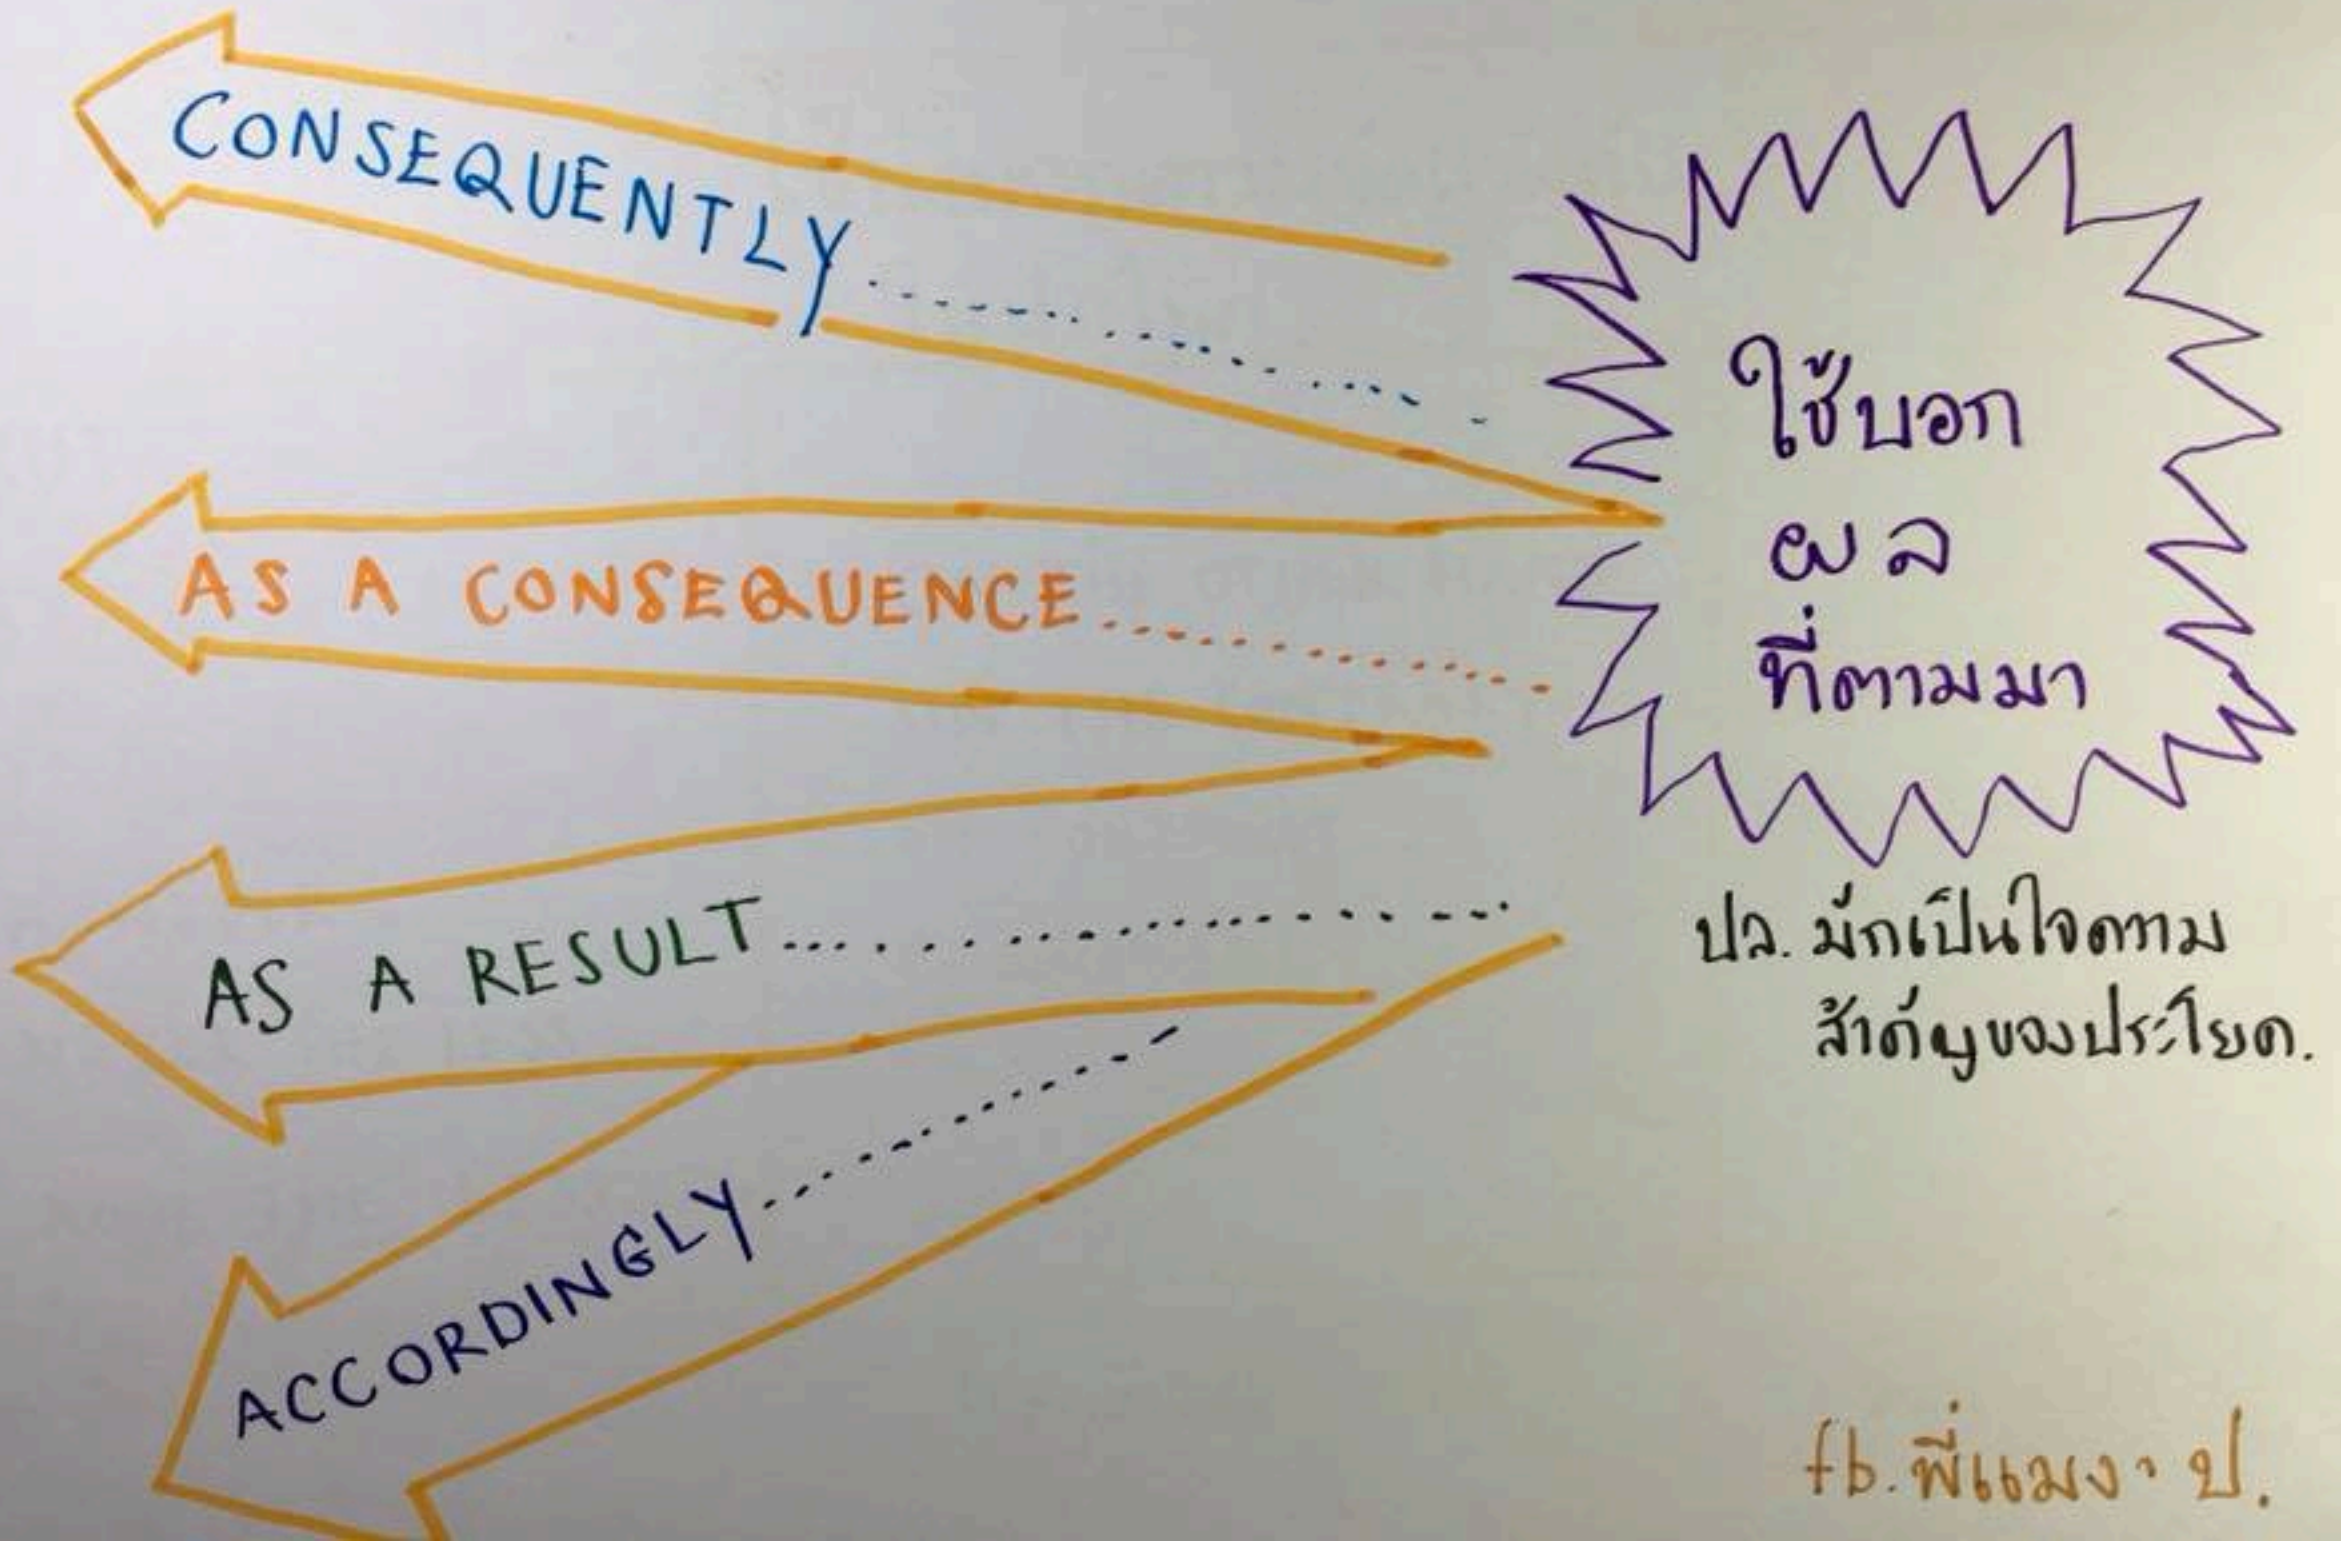 CONSEQUENTLY
AS A CONSEQUENCE
AS A RESULT
ACCORDINGLY
ใช้บอก
ผล
ที่ตามมา
ปล. มักเป็นใจความ
สำคัญของประโยค.
fb. พี่แมง ป.